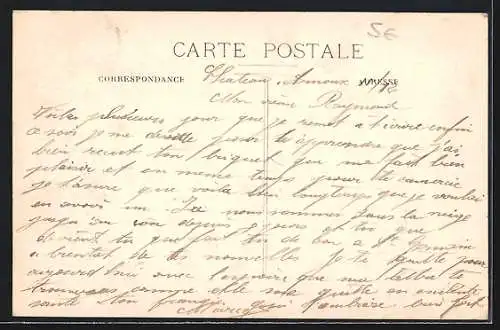 5E
CARTE POSTALE
CORRESPONDANCE
Chateau Arnoux
Mon Raymond
Voila plusieurs jour que je remet a t'ecrire enfin
ce soir je me decide pour t'apprendre que j'ai
bien recut ton briquet qui me fait bien
plaisir et en meme temps pour te remercie
je t'assure que voila bien longtemps que je voulai
en avoir un Ici nous sommes sous la neige
depuis jours et toi que
devient tu que fait tu de bon a St
a bientot de tes nouvelles Je te quitte pour
aujourd'hui avec que ma lettre te
trouveras comme elle me quitte en
santé Ton t'embrasse bien fort